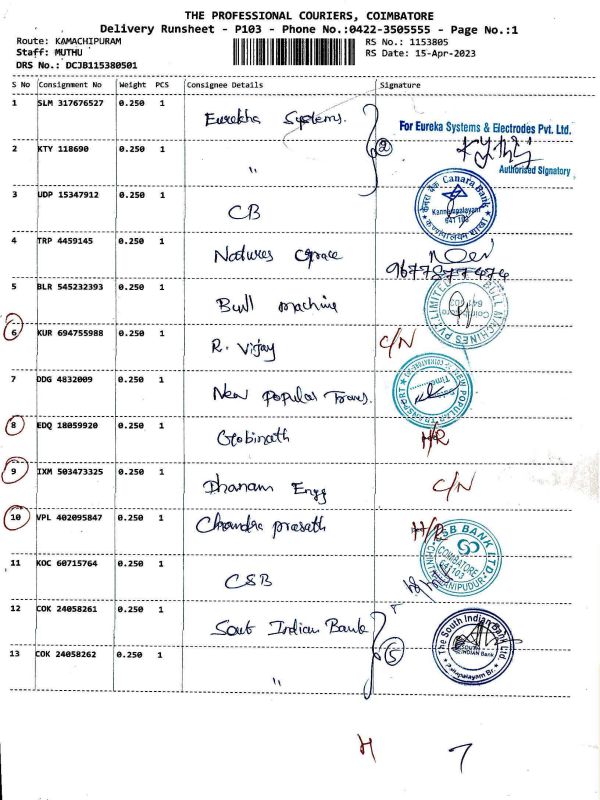 THE PROFESSIONAL COURIERS, COIMBATORE
Delivery Runsheet - P103 - Phone No.:0422-3505555 - Page No.:1
Route: KAMACHIPURAM RS No.: 1153805
Staff: MUTHU RS Date: 15-Apr-2023
DRS No.: DCJB115380501
S No Consignment No Weight PCS Consignee Details Signature
1 SLM 317676527 0.250 1 Eurekha Systems.
For Eureka Systems & Electrodes Pvt. Ltd.
2 KTY 118690 0.250 1 " 2
Authorised Signatory
3 UDP 15347912 0.250 1 CB
Canara Bank
641 103
4 TRP 4459145 0.250 1 Natures Grace
9677877474
5 BLR 545232393 0.250 1 Bull machine
BULL MACHINES PVT. LIMITED
6 KUR 694755988 0.250 1 R. Vijay C/N
7 DDG 4832009 0.250 1 New Popular Trans.
NEW POPULAR TRANSPORT
8 EDQ 18059920 0.250 1 Gobinath H/R
9 IXM 503473325 0.250 1 Dhanam Engg C/N
10 VPL 402095847 0.250 1 Chandra prasath H/R
CSB BANK LTD.
COIMBATORE
641103
11 KOC 60715764 0.250 1 CSB
12 COK 24058261 0.250 1 Sout Indian Bank
The South Indian Bank Ltd
SOUTH INDIAN Bank
13 COK 24058262 0.250 1 " 5
H 7